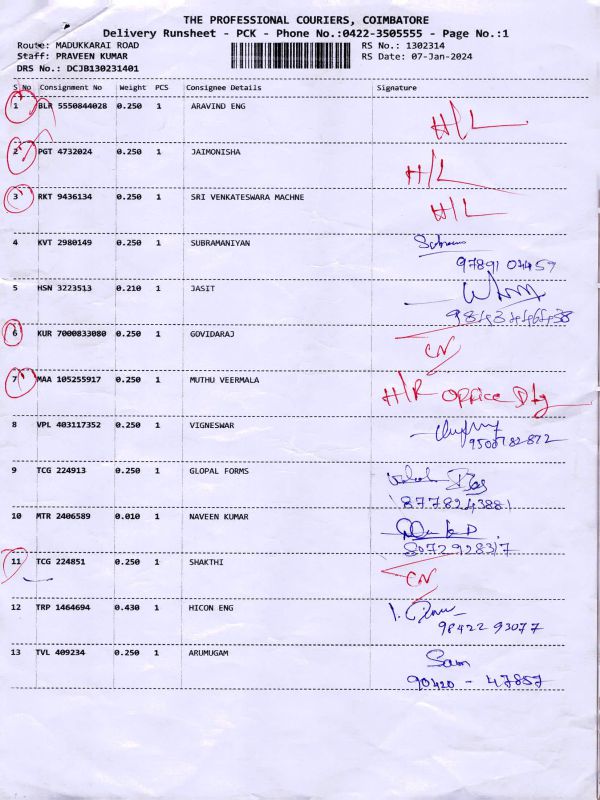 THE PROFESSIONAL COURIERS, COIMBATORE
Delivery Runsheet - PCK - Phone No.:0422-3505555 - Page No.:1
Route: MADUKKARAI ROAD RS No.: 1302314
Staff: PRAVEEN KUMAR RS Date: 07-Jan-2024
DRS No.: DCJB130231401
S No Consignment No Weight PCS Consignee Details Signature
1 BLR 5550844028 0.250 1 ARAVIND ENG H/L
2 PGT 4732024 0.250 1 JAIMONISHA H/L
3 RKT 9436134 0.250 1 SRI VENKATESWARA MACHNE H/L
4 KVT 2980149 0.250 1 SUBRAMANIYAN
97891 04459
5 HSN 3223513 0.210 1 JASIT
6 KUR 7000833080 0.250 1 GOVIDARAJ CN
7 MAA 105255917 0.250 1 MUTHU VEERMALA H/R OFFice
8 VPL 403117352 0.250 1 VIGNESWAR
9500782872
9 TCG 224913 0.250 1 GLOPAL FORMS
8778243881
10 MTR 2406589 0.010 1 NAVEEN KUMAR
8072928317
11 TCG 224851 0.250 1 SHAKTHI CN
12 TRP 1464694 0.430 1 HICON ENG
98422 93077
13 TVL 409234 0.250 1 ARUMUGAM Sam
90420 - 47857